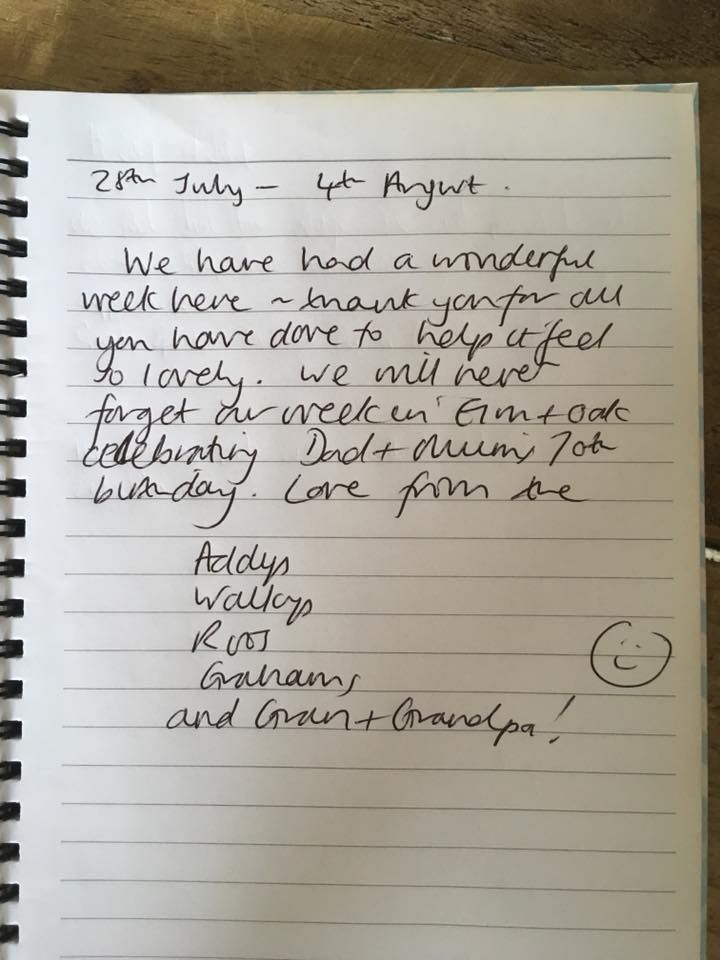 28th July – 4th August.
We have had a wonderful
week here ~ thank you for all
you have done to help it feel
so lovely. We will never
forget our week in Elm + Oak
celebrating Dad + Mum's 70th
birthday. Love from the
Addys
Wallays
Roos
Grahams
and Gran + Grandpa!